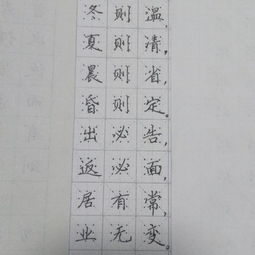 冬则温,
夏则清,
晨则省,
昏则定。
出必告,
返必面,
居有常,
业无变。